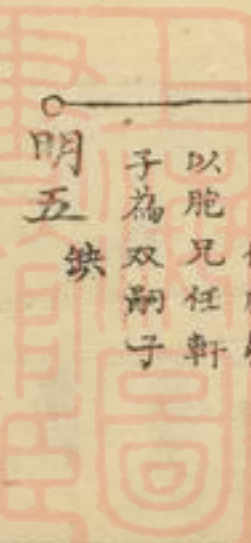 以胞兄任軒
子為双嗣子
明五
缺